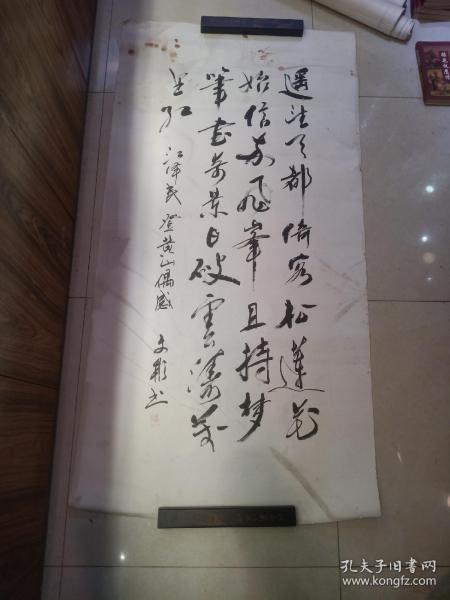 遥望天都倚客松蓮花
始信两飞峯且持梦
筆书奇景日破雲濤萬
里红 江泽民 登黄山偶感
孔夫子旧书网
www.kongfz.com